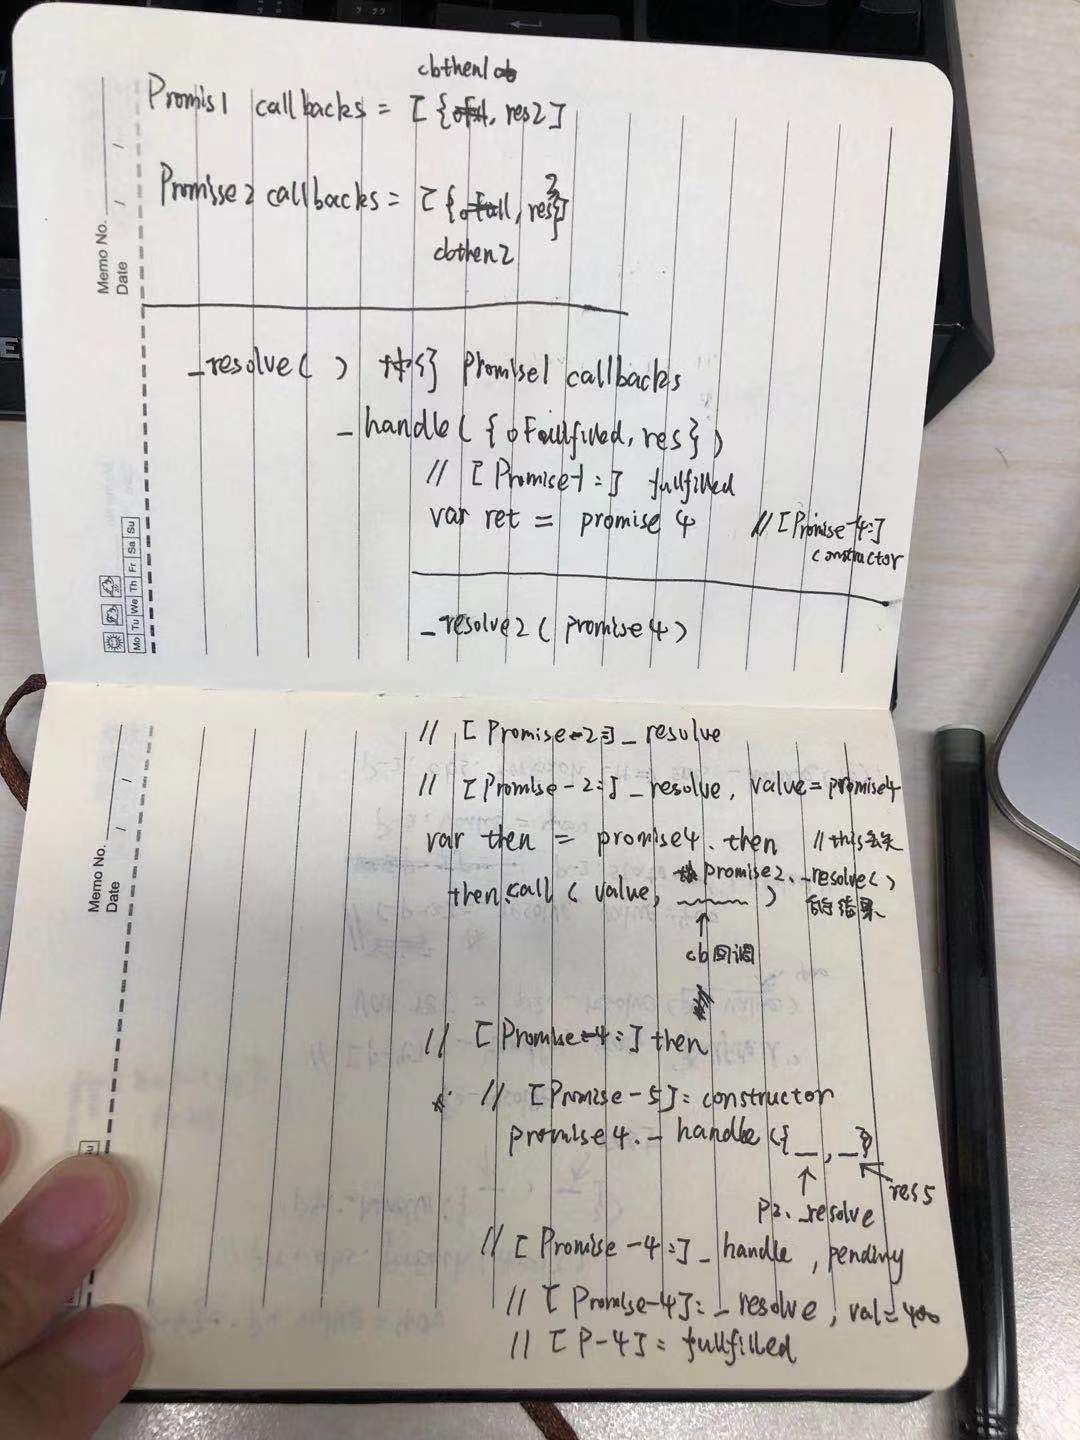 cbthen1
Promis1 callbacks = [{ , res2]
Promisse2 callbacks = [{ , res3}]
cbthen2
Memo No.
Date / /
_resolve( ) 执行 Promise1 callbacks
_handle({oFaullfilled, res})
// [Promise-1:] fullfilled
var ret = promise4 // [Promise-4:]
constructor
_resolve2(promise4)
Mo Tu We Th Fr Sa Su
// [Promise-2:]_resolve
// [Promise-2:]_resolve, value=promise4
var then = promise4.then // this丢失
then.call(value, promise2._resolve()
) 的结果
cb回调
Memo No.
Date / /
// [Promise-4:] then
// [Promise-5]: constructor
promise4._handle({_, _})
res5
P2._resolve
// [Promise-4:]_handle, pending
// [Promise-4]: _resolve, val=400
// [P-4]: fullfilled